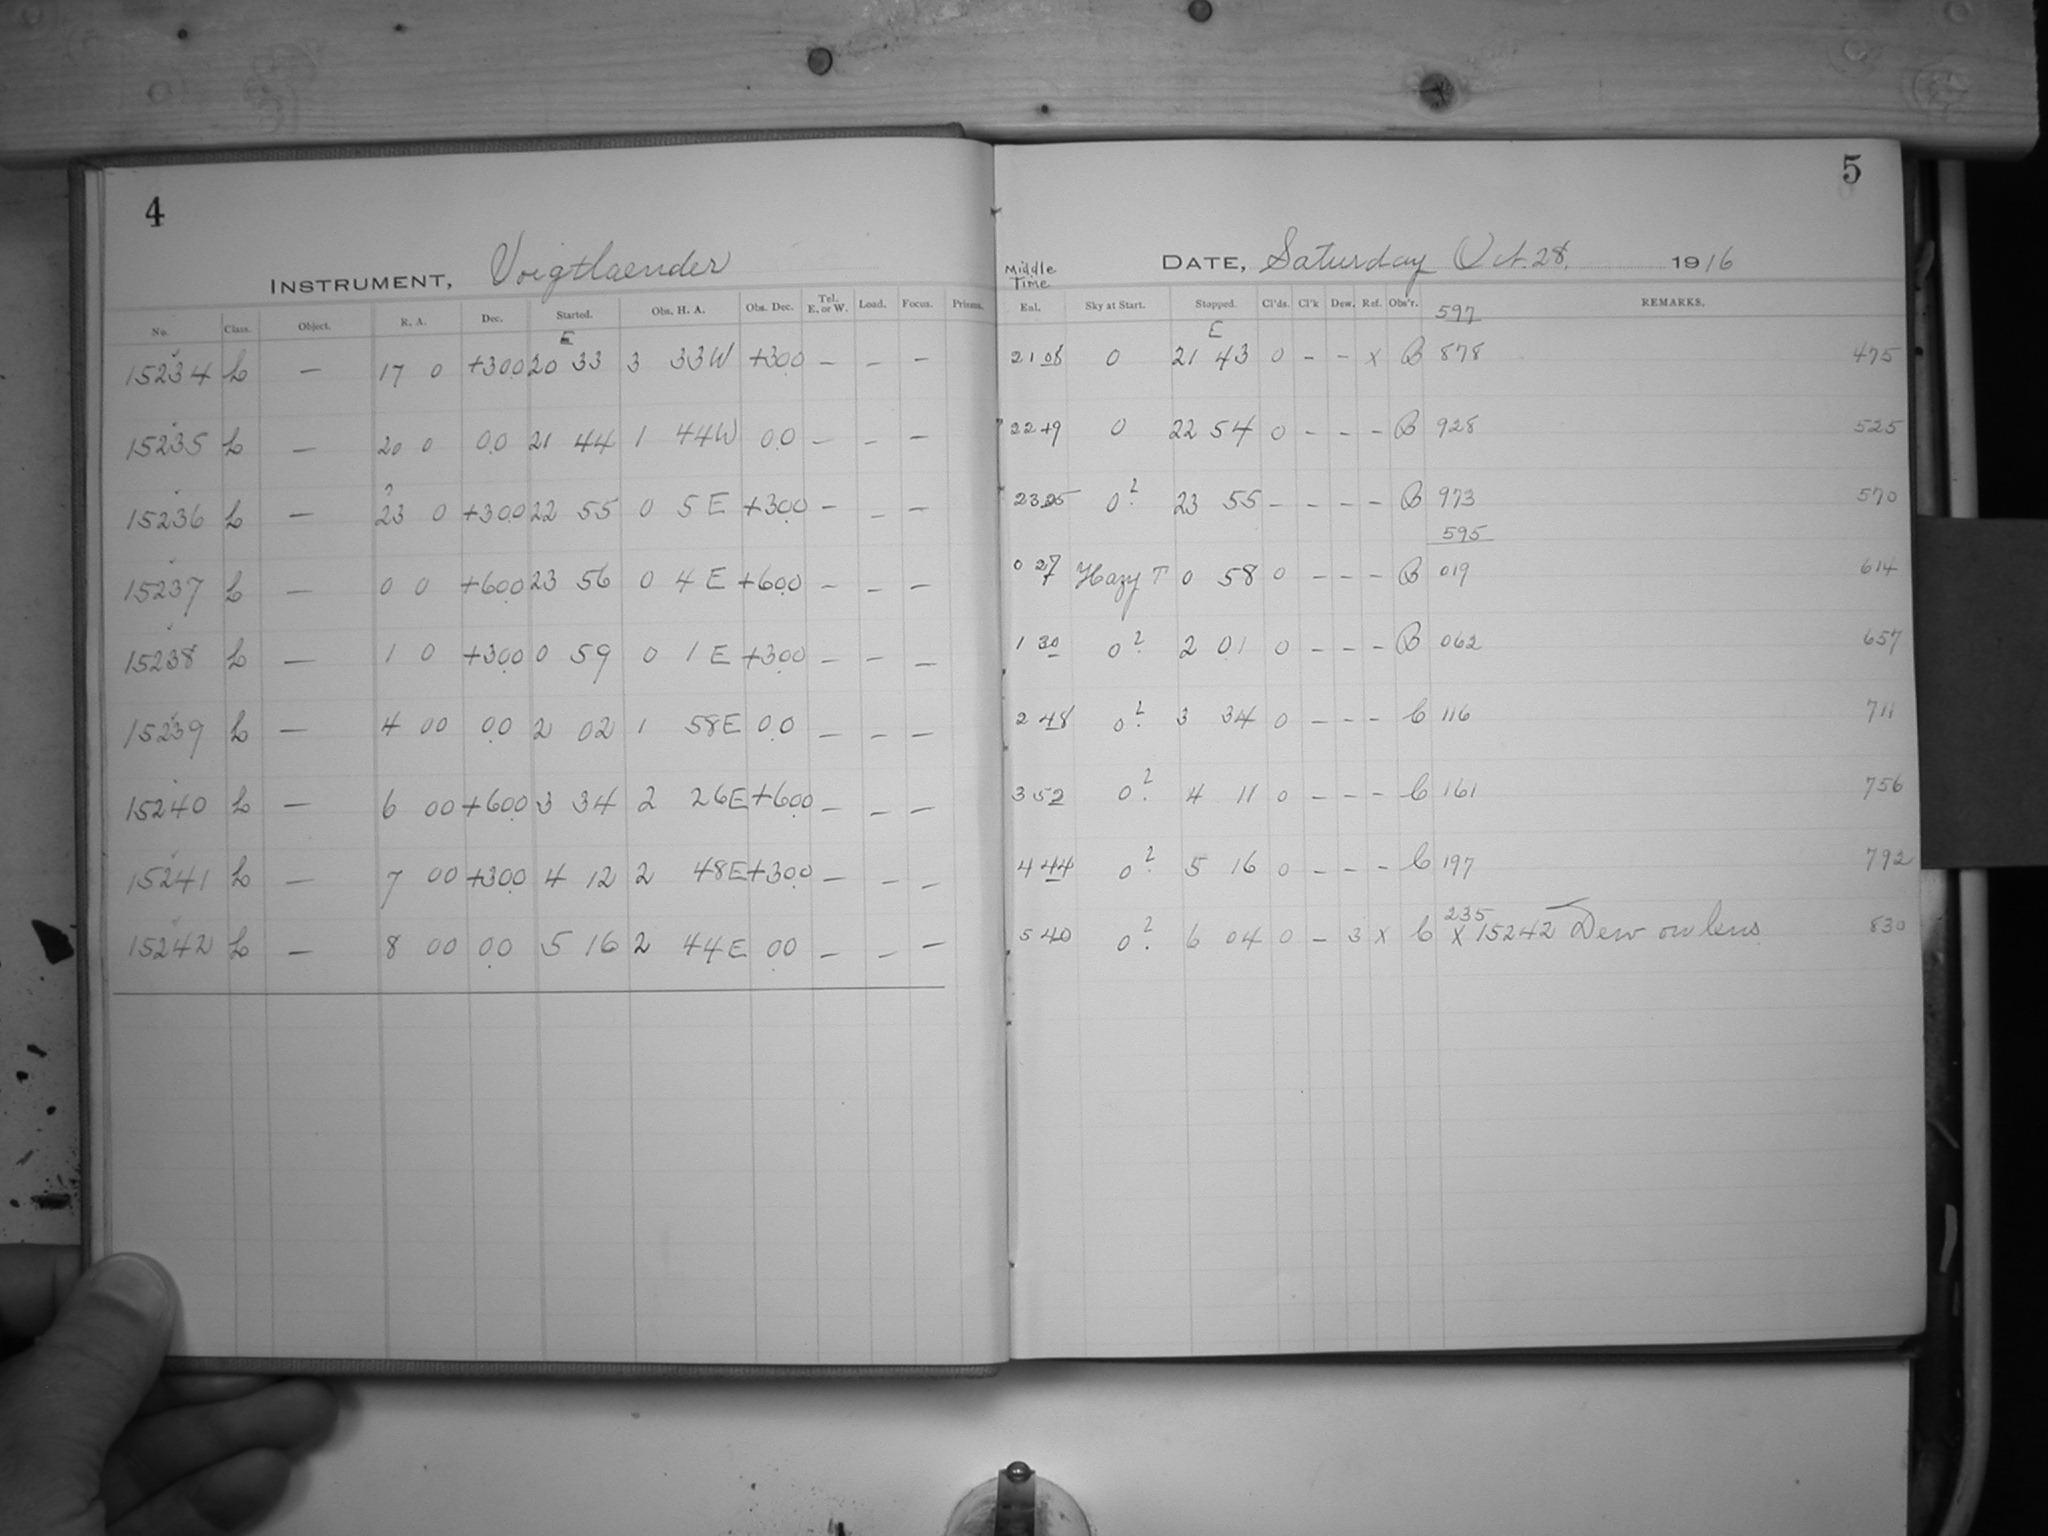 4
INSTRUMENT, Voigtlaender
No. Class. Object. R. A. Dec. Started. Obs. H. A. Obs. Dec. Tel. E. or W. Load. Focus. Prisms.
E
15234 L — 17 0 +30.0 20 33 3 33W +30.0 — — —
15235 L — 20 0 0.0 21 44 1 44W 0.0 — — —
15236 L — 23 0 +30.0 22 55 0 5 E +30.0 — — —
15237 L — 0 0 +60.0 23 56 0 4 E +60.0 — — —
15238 L — 1 0 +30.0 0 59 0 1 E +30.0 — — —
15239 L — 4 00 0.0 2 02 1 58E 0.0 — — —
15240 L — 6 00 +60.0 3 34 2 26E +60.0 — — —
15241 L — 7 00 +30.0 4 12 2 48E +30.0 — — —
15242 L — 8 00 0.0 5 16 2 44E 0.0 — — —
5
DATE, Saturday Oct. 28, 1916
Middle Time
Enl. Sky at Start. Stopped. Cl'ds. Cl'k Dew. Ref. Obs'r. 597 REMARKS.
E
21 08 0 21 43 0 - - x B 878 475
22 19 0 22 54 0 - - - B 928 525
23 25 0? 23 55 - - - - B 973 570
595
0 27 Hazy T 0 58 0 - - - B 019 614
1 30 0? 2 01 0 - - - B 062 657
2 48 0? 3 34 0 - - - C 116 711
3 52 0? 4 11 0 - - - C 161 756
4 44 0? 5 16 0 - - - C 197 792
5 40 0? 6 04 0 - 3 x C 235 x 15242 Dew on lens 830